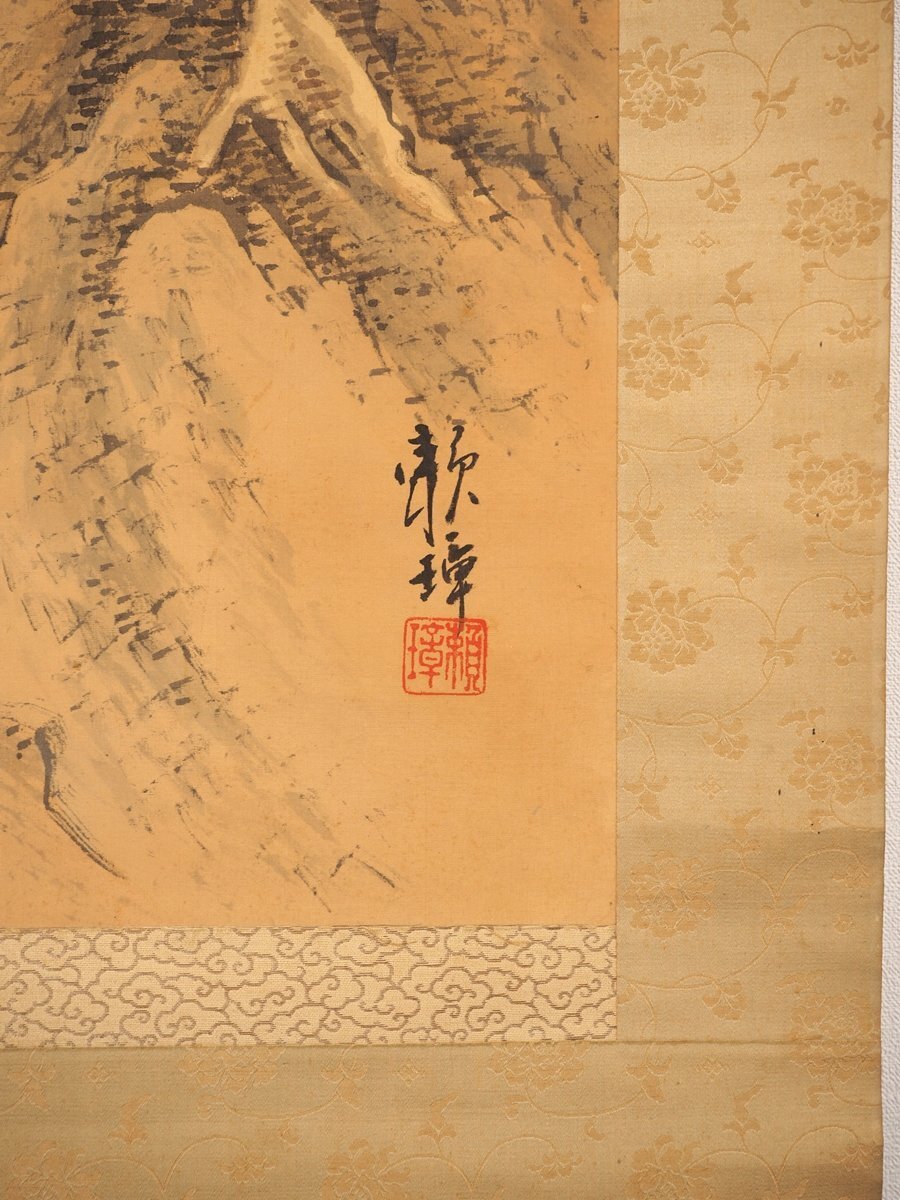 頼璋
頼璋